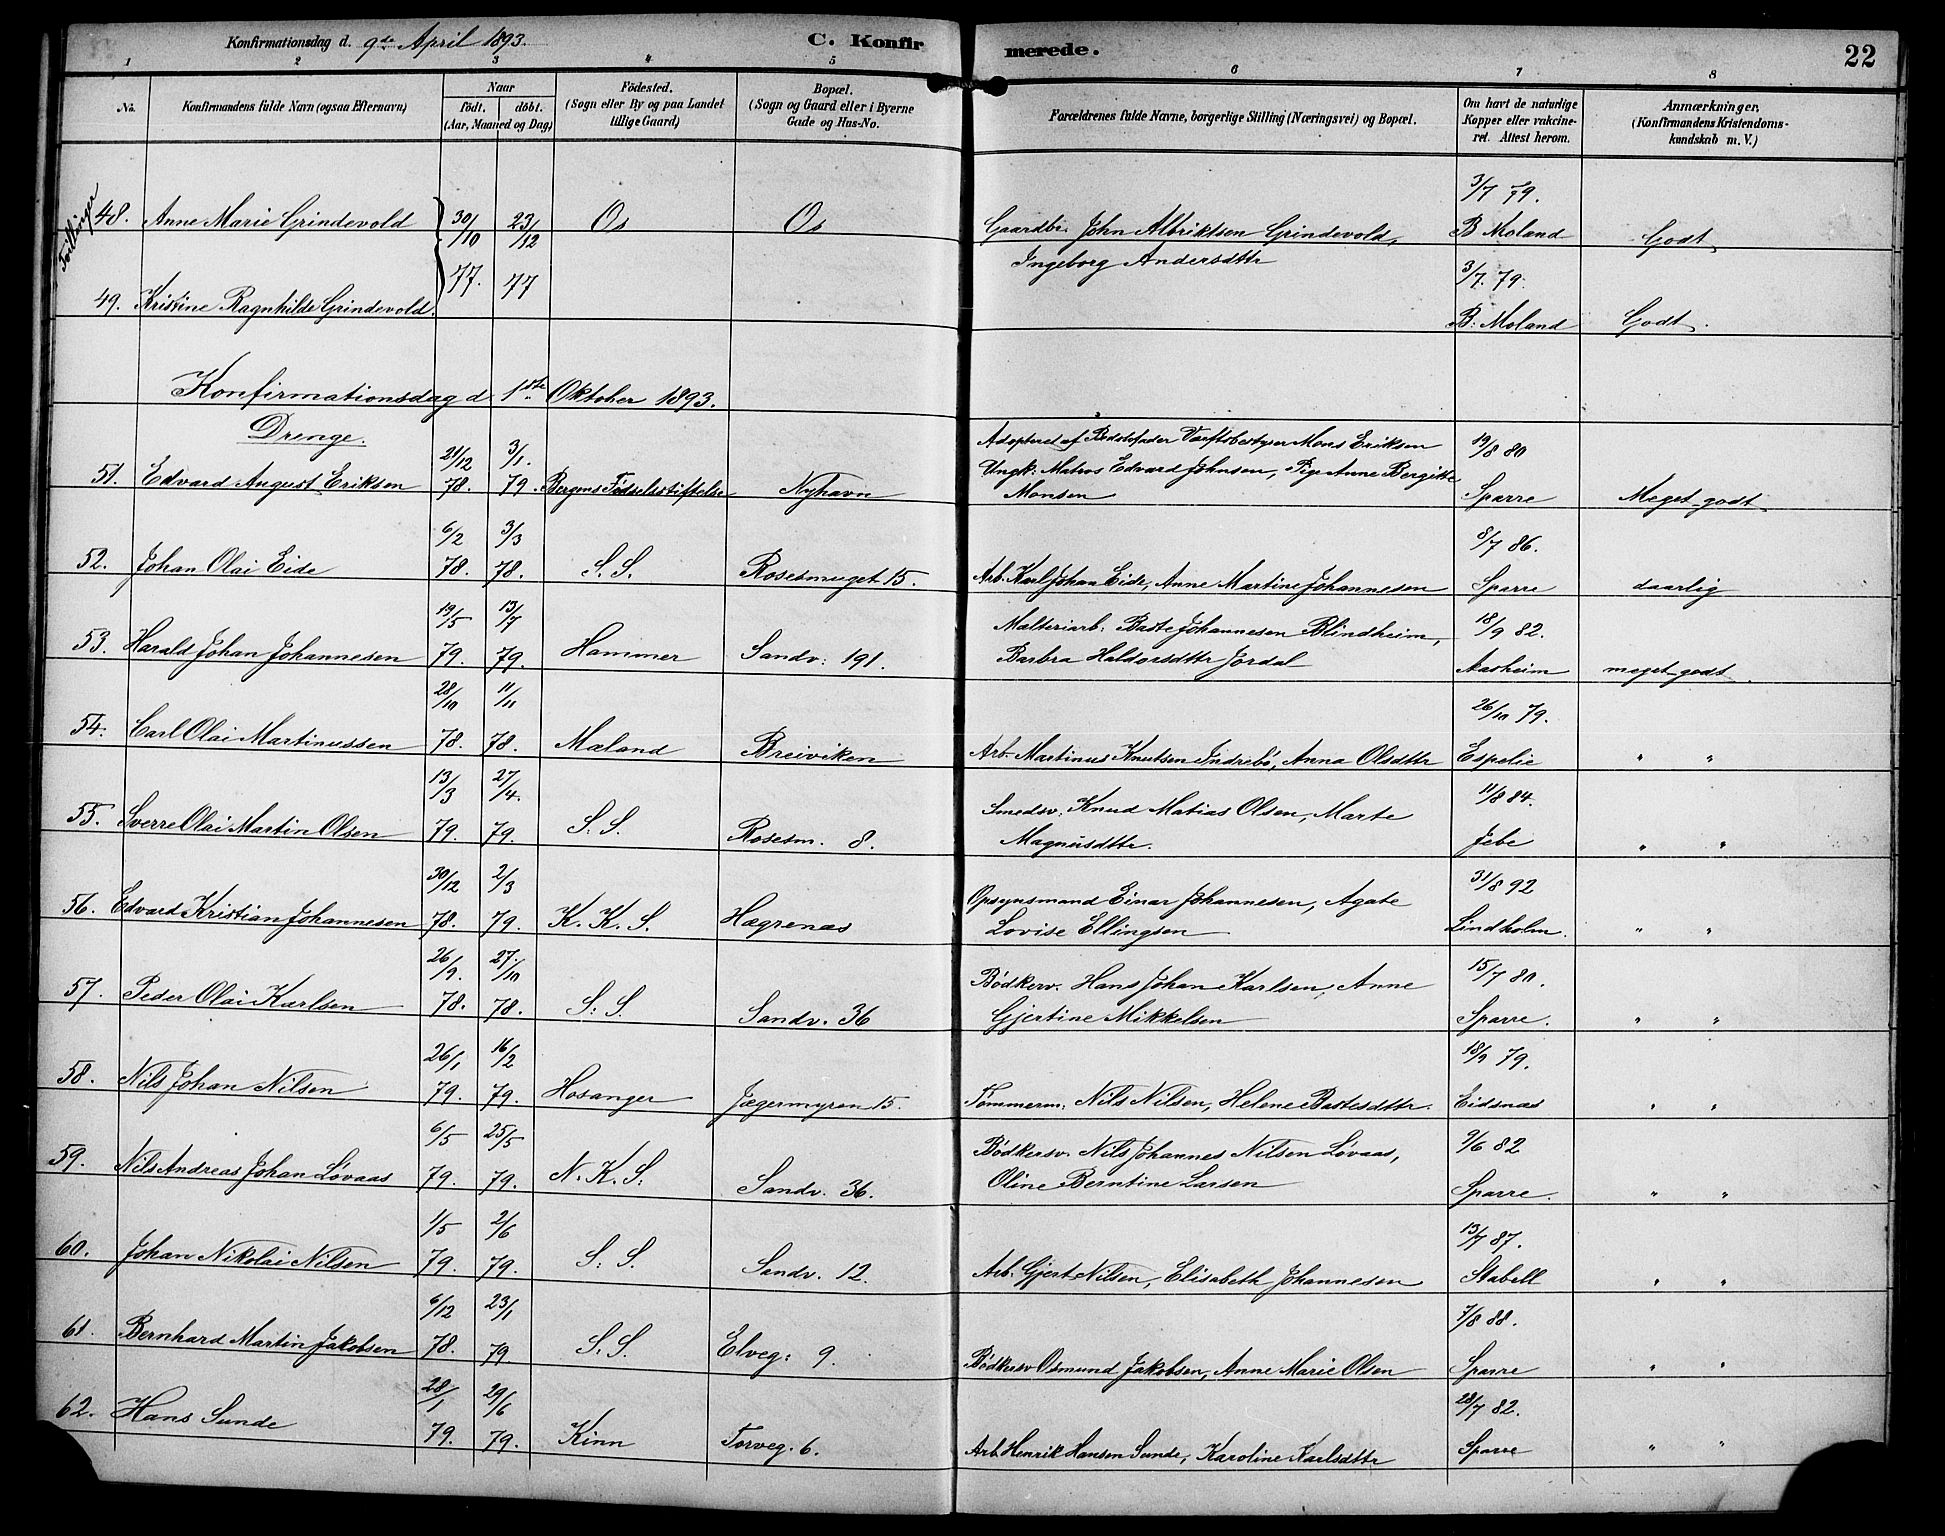 Konfirmationsdag d. 9de April 1893. C. Konfirmerede. 22
1 2 3 4 5 6 7 8
No. Konfirmandens fulde Navn (ogsaa Efternavn) Naar født. døbt. (Aar, Maaned og Dag) Födested. (Sogn eller By og paa Landet tillige Gaard) Bopæl. (Sogn og Gaard eller i Byerne Gade og Hus-No. Forældrenes fulde Navne, borgerlige Stilling (Næringsvei) og Bopæl. Om havt de naturlige Kopper eller vakcineret. Attest herom. Anmærkninger. (Konfirmandens Kristendomskundskab m. V.)
Tvillinger
48. Anne Marie Grindevold 30/10 77. 23/12 77 Os Os Gaardbr. John Albriktsen Grindevold, Ingeborg Andersdttr 3/7 79. B. Moland Godt
49. Kristine Ragnhilde Grindevold. 3/7. 79. B: Moland Godt.
Konfirmationsdag d 1ste Oktober 1893.
Drenge.
51. Edvard August Eriksen 21/12 78. 3/1. 79. Bergens Fødselsstiftelse Nyhavn Adopteret af Bedstefader Værftsbestyser Mons Eriksen Ungk: Matros Edvard Johnsen, Pige Anne Bergitte Monsen 19/8 80 Sparre Meget godt
52. Johan Olai Eide 6/2 78. 3/3 78. S. S. Rosesmuget 15. Arb. Karl Johan Eide, Anne Martine Johannesen 8/7 86. Sparre daarlig
53. Harald Johan Johannesen 19/5 79. 13/7 79. Hammer Sandv: 191. Malteriarb: Baste Johannesen Blindheim, Barbra Haldorsdttr Jordal 18/9 82. Aasheim meget godt
54. Carl Olai Martinussen 28/10 78. 11/11 78. Mæland Breiviken Arb. Martinus Knutsen Indrebø, Anna Olsdttr 26/10 79. Espelie " "
55. Sverre Olai Martin Olsen 13/3 79. 27/4. 79. S. S. Rosesm. 8. Smedsv: Knud Matias Olsen, Marte Magnusdttr. 11/8 84. Jebe " "
56. Edvard Kristian Johannesen 30/12 78. 2/3 79. K. K. S. Hægrenæs Opsynsmand Einar Johannesen, Agate Lovise Ellingsen 31/8 92 Lindholm. " "
57. Peder Olai Karlsen 26/9. 78. 27/10 78. S. S. Sandv. 36 Bødkersv. Hans Johan Karlsen, Anne Gjertine Mikkelsen 15/7 80. Sparre. " "
58. Nils Johan Nilsen 26/1 79. 16/2 79. Hosanger Jægermyren 15. Tømmerm: Nils Nilsen, Helene Bastesdttr. 18/9 79. Eidsnæs " "
59. Nils Andreas Johan Løvaas 6/5 79. 25/5 79. N. K. S. Sandv. 36. Bødkersv. Nils Johannes Nilsen Løvaas, Oline Berntine Larsen 9/6 82 Sparre. " "
60. Johan Nikolai Nilsen 1/5 79. 2/6 79. S. S. Sandv. 12. Arb. Gjert Nilsen, Elisabeth Johannesen 13/7 87. Stabell " "
61. Bernhard Martin Jakobsen 6/12 78. 23/1 79. S. S. Elveg: 9. Bødkersv Osmund Jakobsen, Anne Marie Olsen 7/8 88. Sparre " "
62. Hans Sunde 28/1 79. 29/6 79. Kinn Torveg. 6. Arb. Henrik Hansen Sunde, Karoline Karlsdttr 28/7 82. Sparre " "